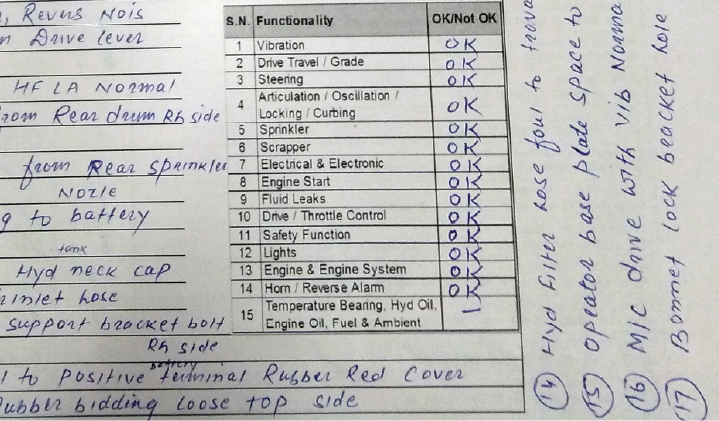 , Revers Nois
Drive lever
HF LA Normal
from Rear drum Rh side
from Rear Sprinkler
Nozle
to battery
tank
Hyd neck cap
inlet hose
support bracket bolt
Rh side
to Positive battery terminal Rubber Red Cover
Rubber bidding loose top side
S.N. Functionality OK/Not OK
1 Vibration OK
2 Drive Travel / Grade OK
3 Steering OK
4 Articulation / Oscillation / Locking / Curbing OK
5 Sprinkler OK
6 Scrapper OK
7 Electrical & Electronic OK
8 Engine Start OK
9 Fluid Leaks OK
10 Drive / Throttle Control OK
11 Safety Function OK
12 Lights OK
13 Engine & Engine System OK
14 Horn / Reverse Alarm OK
15 Temperature Bearing, Hyd Oil, Engine Oil, Fuel & Ambient
14 Hyd filter hose foul to
15 Opeator base plate space to
16 M/c drive with vib Norma
17 Bonnet lock bracket hole